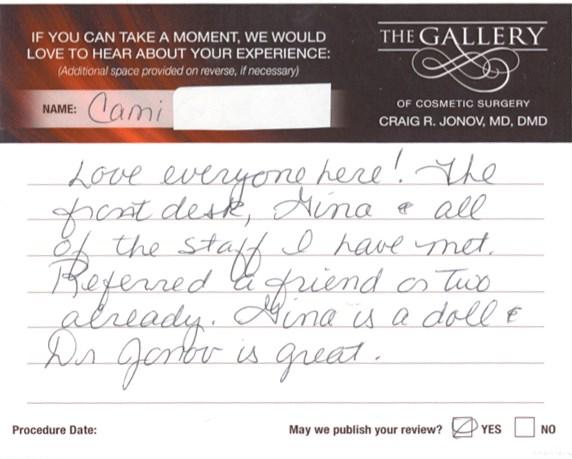 IF YOU CAN TAKE A MOMENT, WE WOULD
LOVE TO HEAR ABOUT YOUR EXPERIENCE:
(Additional space provided on reverse, if necessary)
NAME: Cami
THE GALLERY
OF COSMETIC SURGERY
CRAIG R. JONOV, MD, DMD
Love everyone here! The
front desk, Gina & all
of the staff I have met.
Referred a friend or two
already. Gina is a doll &
Dr Jonov is great.
Procedure Date:
May we publish your review? YES NO